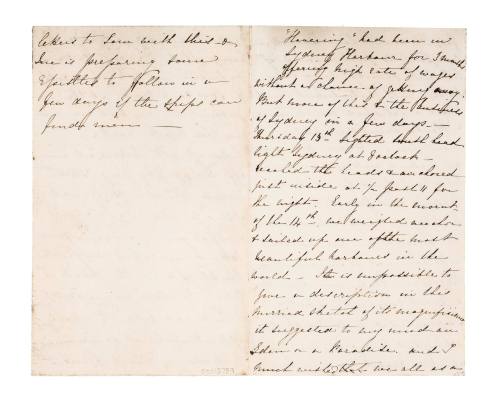 letters to Sam with this – &
Eve is preparing some
Epistles to follow in a
few days if the ships can
find men –
"Havering" had been in
Sydney Harbour for 3 months
offering high rate of wages
without a chance of getting away.
But more of this in the
of Sydney in a few days –
Thursday 13th Sighted South head
light Sydney at 7 oclock –
reached the heads & anchored
just inside at ½ past 11 for
the night. Early in the mornt.
of the 14th we weighed anchor
& sailed up one of the most
beautiful harbours in the
world – It is impossible to
give a description in this
hurried sketch of its magnificence
it suggested to my mind an
Eden or a Paradise. and I
much wished that we all as a